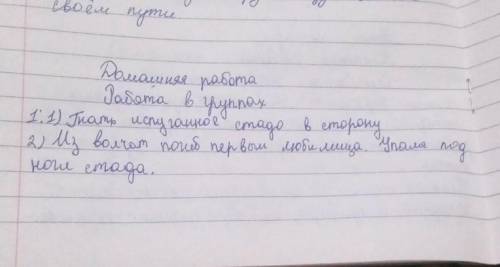 своём пути
Домашняя работа
Работа в группах
1. 1) Гнать испуганное стадо в сторону
2) Из волчат погиб первым любимица. Упала под
ноги стада.